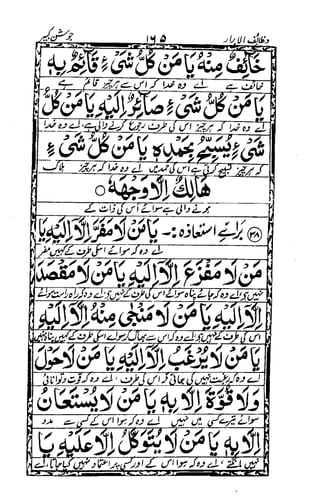 وظائف الابرار ۱۶۵ جوشن کبیر
خَائِفٌ مِنْهُ يَا مَنْ كُلُّ شَيْءٍ قَائِمٌ بِهٖ
خائف ہے اے وہ خدا کہ جس سے ہر چیز قائم ہے
يَا مَنْ كُلُّ شَيْءٍ صَائِرٌ اِلَيْهِ يَا مَنْ كُلُّ
اے وہ خدا کہ ہر چیز اس کی طرف رجوع کرنے والی ہے، اے وہ خدا
شَيْءٍ يُسَبِّحُ بِحَمْدِهٖ يَا مَنْ كُلُّ شَيْءٍ
کہ ہر چیز تسبیح کرتی ہے اس کی حمد میں اے وہ خدا کہ ہر چیز ہلاک
هَالِكٌ اِلَّا وَجْهَهٗ
ہونے والی ہے سوائے اُس کی ذات کے
۳۸ برائے استعاذہ :- يَا مَنْ لَا مَفَرَّ اِلَّا اِلَيْهِ يَا
اے وہ کہ سوائے اسکی طرف کے کہیں مفر
مَنْ لَا مَفْزَعَ اِلَّا اِلَيْهِ يَا مَنْ لَا مَقْصَدَ
نہیں اے وہ کہ جائے پناہ سوائے اس کی طرف کے کہیں نہیں اے وہ کہ
اِلَّا اِلَيْهِ يَا مَنْ لَا مَنْجٰى مِنْهُ اِلَّا اِلَيْهِ
نہیں ہے اے وہ کہ اس سے سوائے اسکی طرف کے کہیں پناہ نہیں
يَا مَنْ لَا يُرْغَبُ اِلَّا اِلَيْهِ يَا مَنْ لَا حَوْلَ
اے وہ کہ رغبت نہیں کی جاتی مگر اس کی طرف اے وہ کہ قوت و توانائی
وَلَا قُوَّةَ اِلَّا بِهٖ يَا مَنْ لَا يُسْتَعَانُ
سوائے تیرے کسی میں نہیں اے وہ کہ سوا اس کے کسی سے مدد
اِلَّا بِهٖ يَا مَنْ لَا يُتَوَكَّلُ اِلَّا عَلَيْهِ يَا
نہیں اے وہ کہ سوا اس کے اور کسی پر اعتماد نہیں کیا جاتا، اے